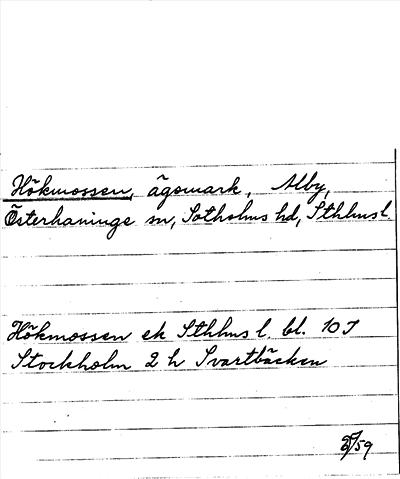 Hökmossen, ägomark, Alby,
Österhaninge sn, Sotholms hd, Sthlms l.
Hökmossen ek Sthlms l. bl. 10 I
Stockholm 2 h Svartbäcken
/59